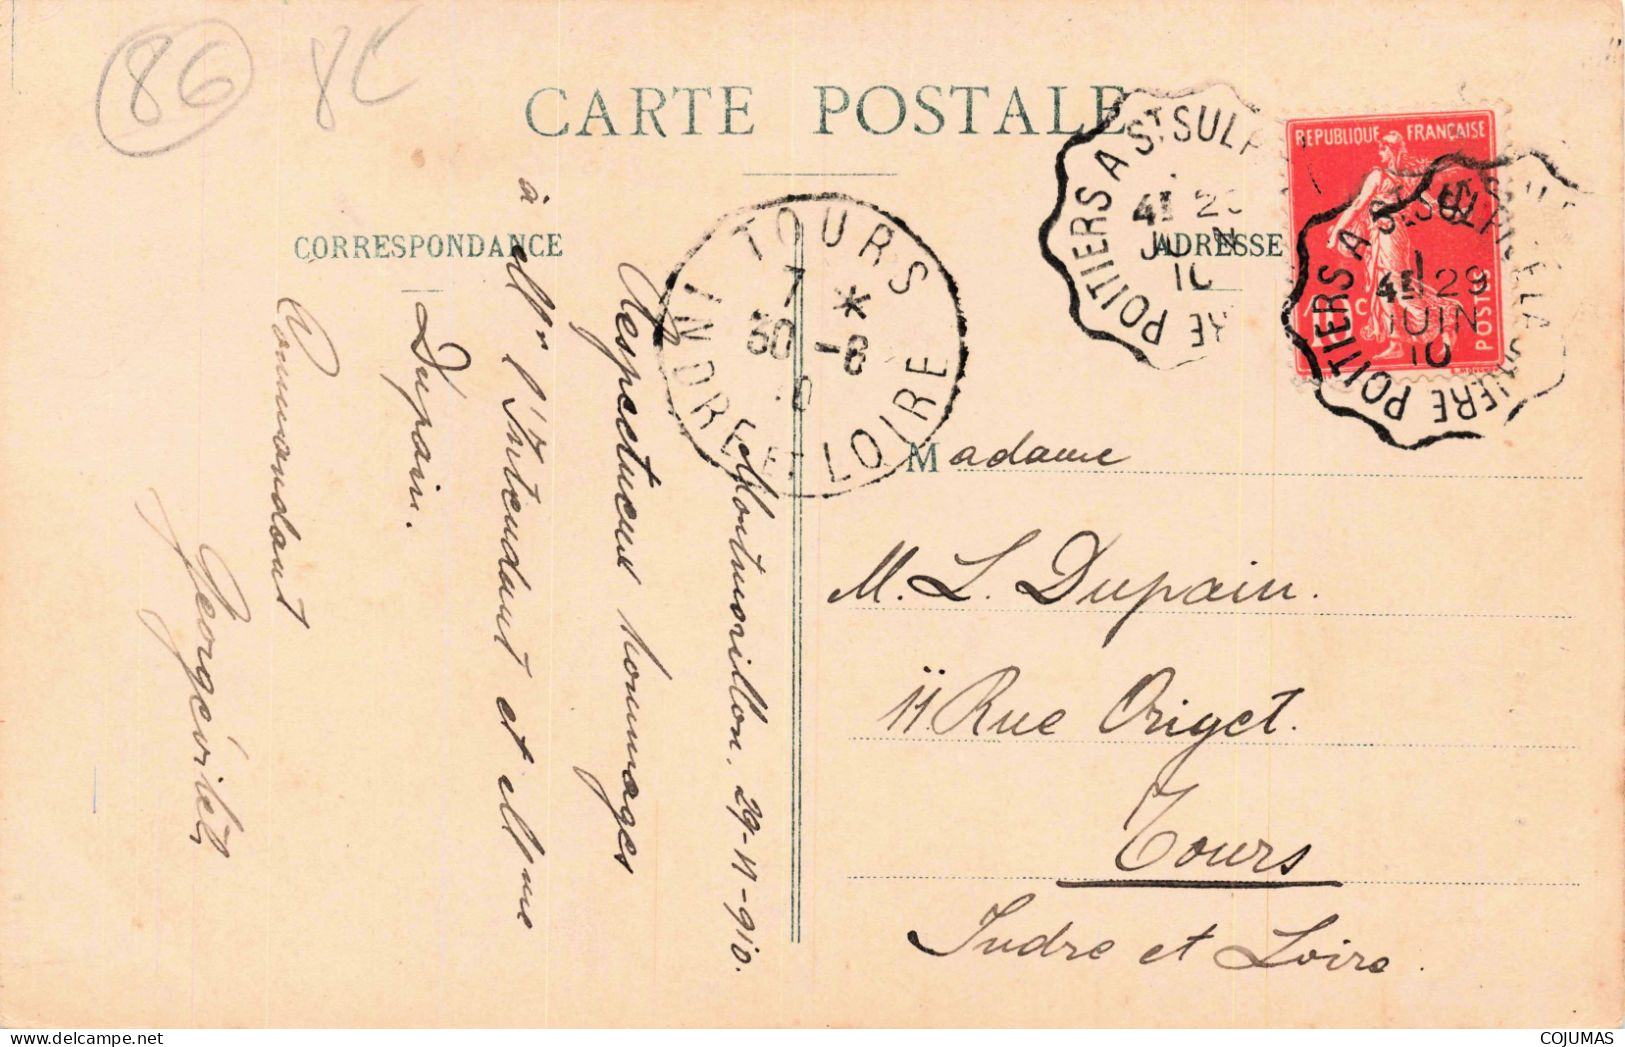 86 86
CARTE POSTALE
CORRESPONDANCE
ADRESSE
REPUBLIQUE FRANÇAISE
10c
POSTES
POITIERS A ST SULP
29
10
POITIERS A ST SULPICE LA
29
JUIN
10
TOURS
7 *
30 -6
INDRE ET LOIRE
Montmorillon, 29-VI-910.
Respectueux hommages
à Mr l'Intendant et Mme
Dupain.
Commandant
Madame
M. L. Dupain.
11 Rue Origet.
Tours
Indre et Loire.
COJUMAS